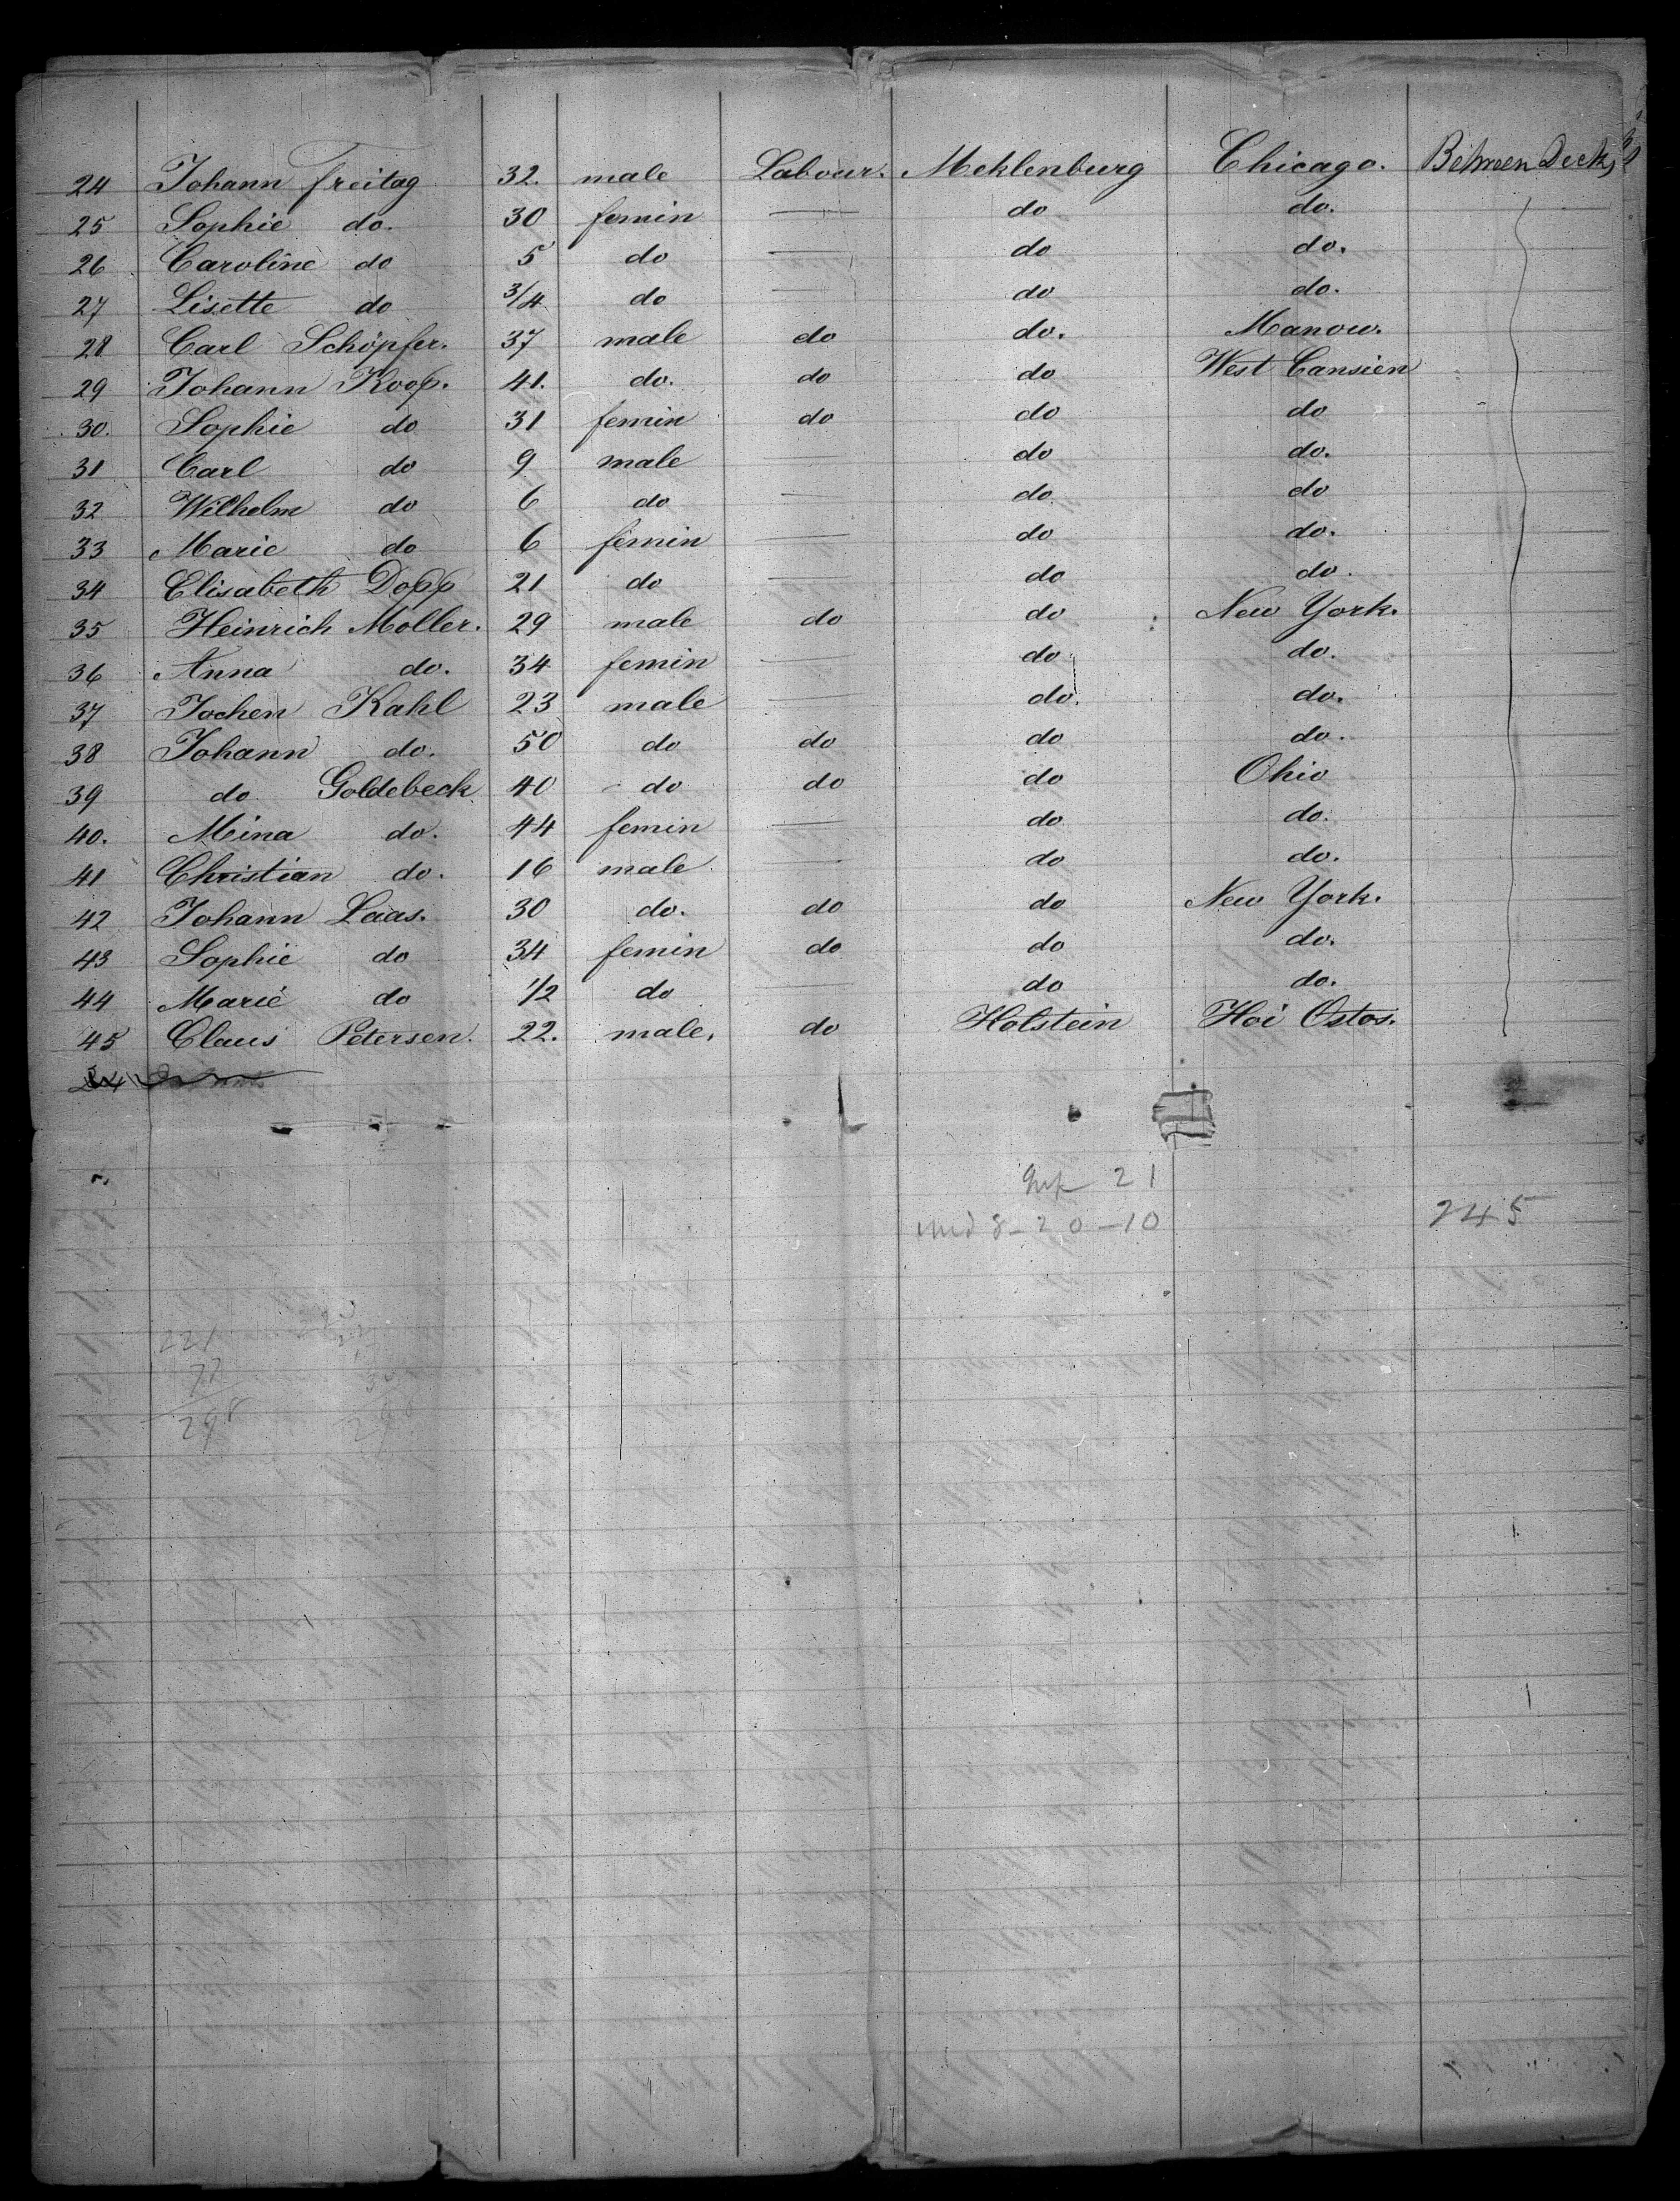 24 Johann Freitag 32. male Labour. Meklenburg Chicago. Betwen Decks
25 Sophie do. 30 femin — do do.
26 Caroline do 5 do — do do.
27 Lisette do 3/4 do — do do.
28 Carl Schöpfer. 37 male do do. Manow.
29 Johann Koop. 41. do. do do West Cansien
30. Sophie do 31 femin do do do
31 Carl do 9 male — do do.
32 Wilhelm do 6 do — do. do
33 Marie do 6 femin — do do.
34 Elisabeth Dopp 21 do — do do.
35 Heinrich Moller. 29 male do do New York.
36 Anna do. 34 femin — do do.
37 Jochen Kahl 23 male — do. do.
38 Johann do. 50 do do do do.
39 do Goldebeck 40 do do do Ohio
40. Mina do. 44 femin — do do.
41 Christian do. 16 male — do do.
42 Johann Laas. 30 do. do do New York.
43 Sophie do 34 femin do do do.
44 Marie do 1/2 do — do do.
45 Claus Petersen. 22. male. do Holstein Hoi Ostos.
21
8-20-10 245
221
77
298